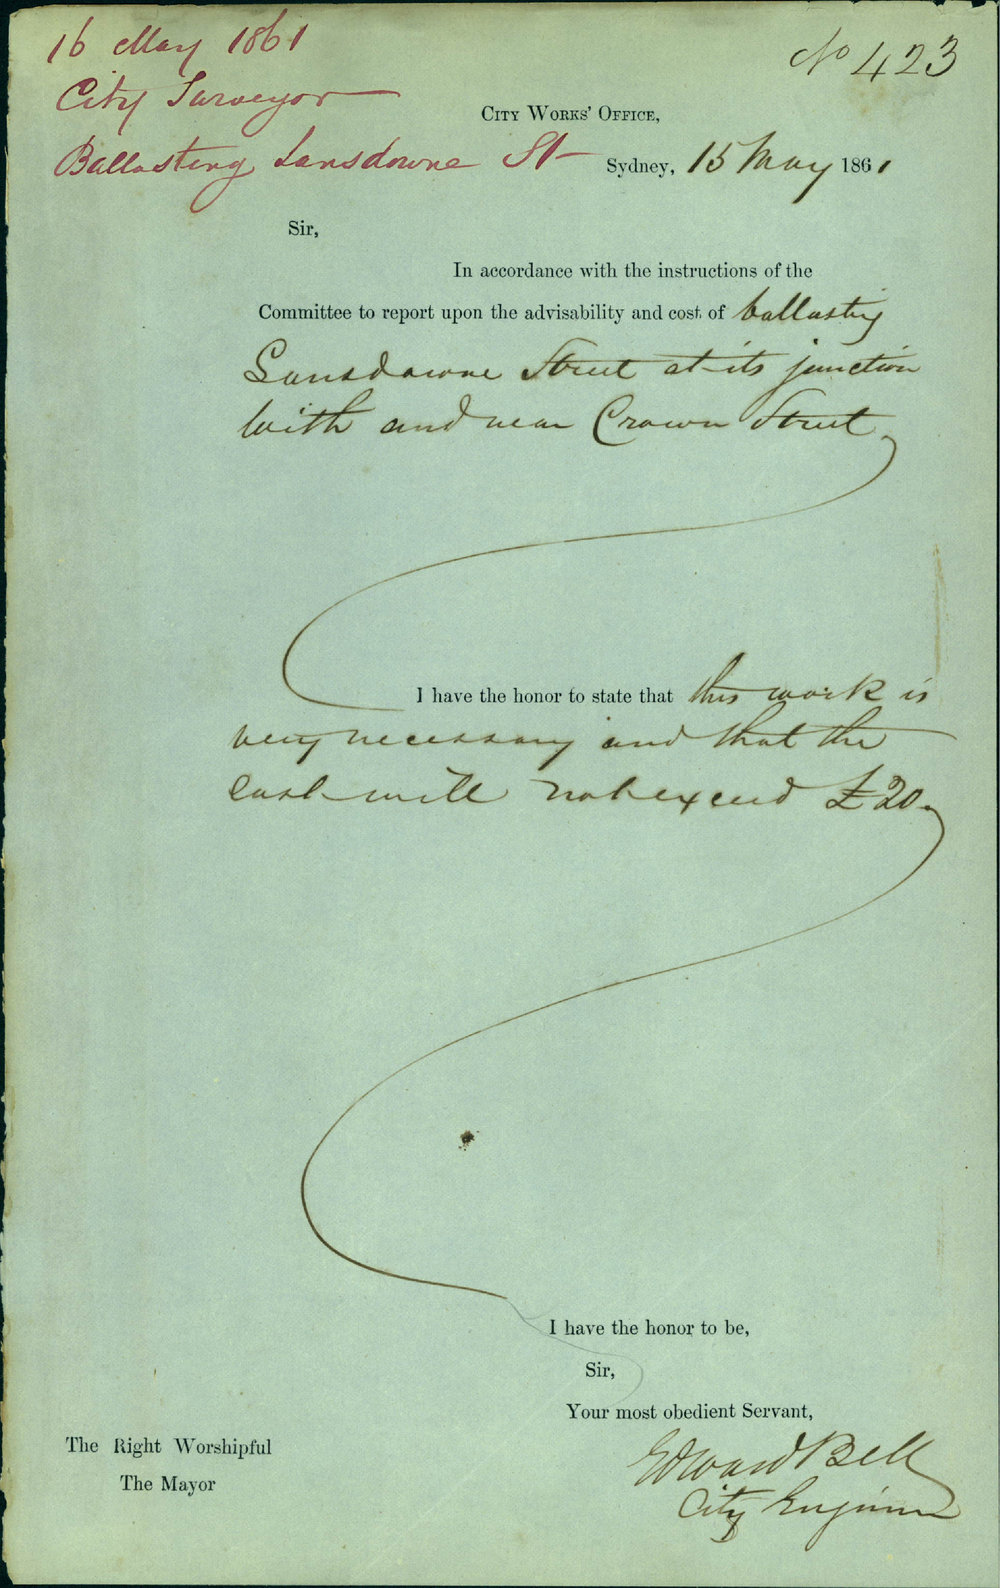 16 May 1861
No 423
City Surveyor
City Works' Office,
Ballasting Lansdowne St
Sydney, 15 May 1861
Sir,
In accordance with the instructions of the
Committee to report upon the advisability and cost of ballasting
Lansdowne Street at its junction
with and near Crown Street,
I have the honor to state that this work is
very necessary and that the
cost will not exceed £20.
I have the honor to be,
Sir,
Your most obedient Servant,
Edward Bell
City Engineer
The Right Worshipful
The Mayor